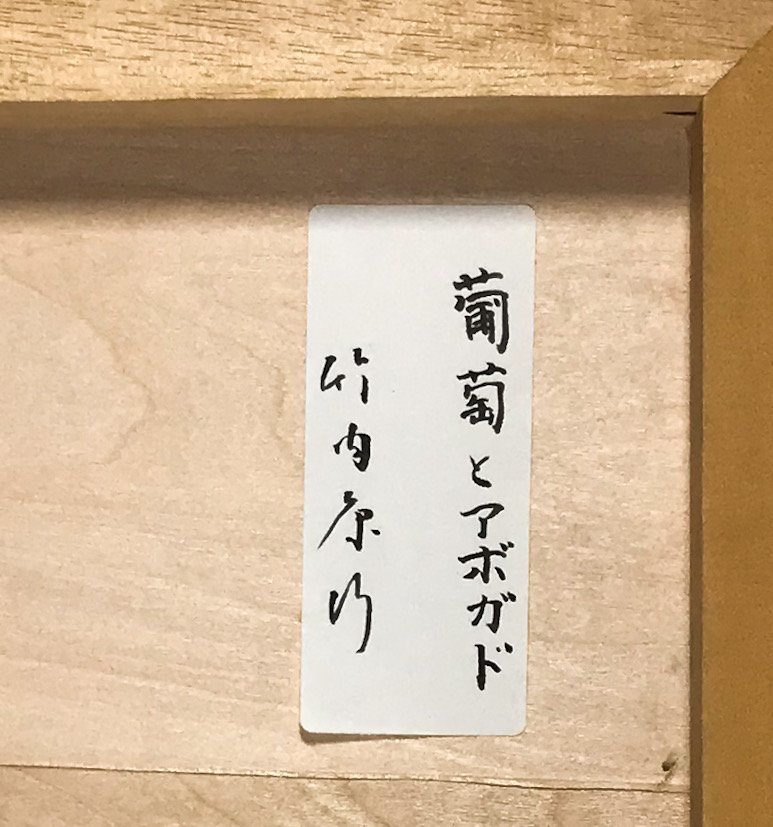 葡萄とアボガド
竹内